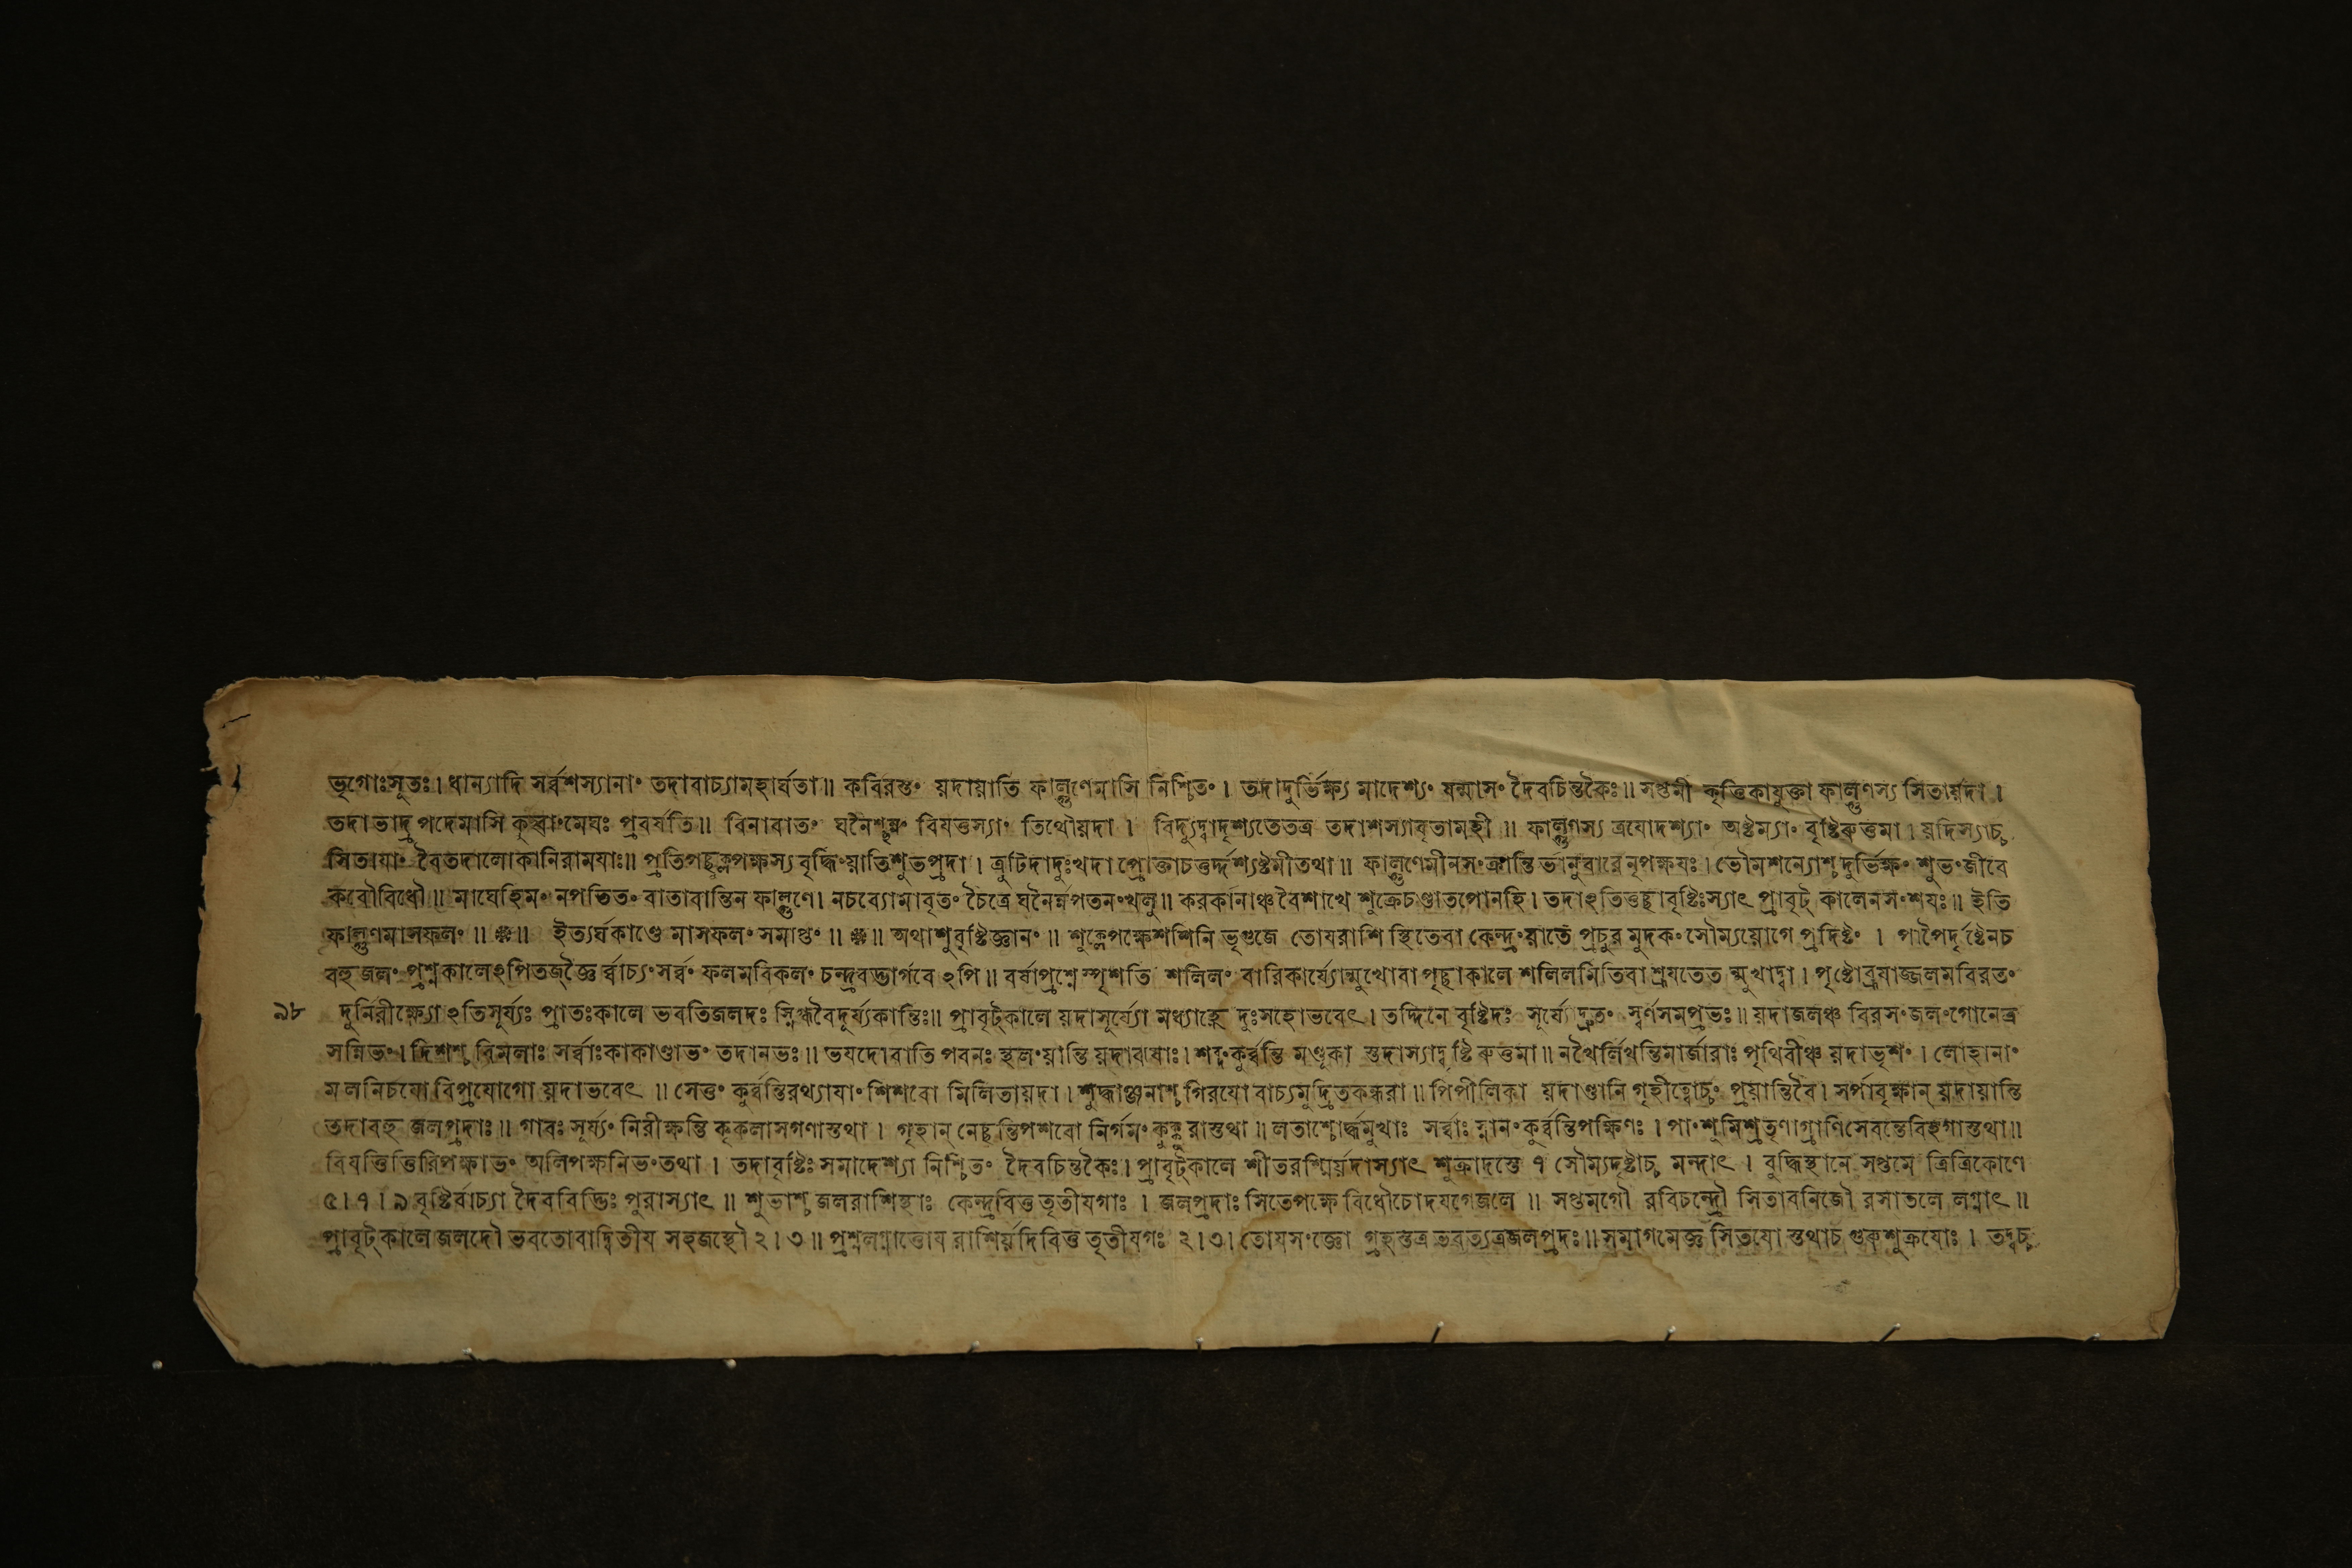 ভৃগোঃসুতঃ। ধান্যাদি সর্ব্বশস্যানাং তদাবাচ্যামহার্ঘতা॥ কবিরস্তং য়দায়াতি ফাল্গুণেমাসি নিশ্চিতং। তদাদুর্ভিক্ষ্য মাদেশ্যং ষন্মাসং দৈবচিন্তকৈঃ॥ সপ্তমী কৃত্তিকাযুক্তা ফাল্গুণস্য সিতার্য়দা।
তদা ভাদ্রপদেমাসি কুহ্বাং মেঘঃ প্রবর্ষতি॥ বিনাবাতং ঘনৈশ্ছন্নং বিযত্তস্যাং তিথৌয়দা। বিদ্যুদ্বাদৃশ্যতেতত্র তদাশস্যাবৃতামহী॥ ফাল্গুণস্য ত্রযোদশ্যাং অষ্টম্যাং বৃষ্টিরুত্তমা। য়দিস্যাচ্চ
সিতাযাং বৈতদালোকানিরামযাঃ॥ প্রতিপচ্ছুক্লপক্ষস্য বৃদ্ধিং য়াতিশুভপ্রদা। ত্রুটিদাদুঃখদা প্রোক্তাচতুর্দ্দশ্যষ্টমীতথা॥ ফাল্গুণেমীনসংক্রান্তি র্ভানুবারেনৃপক্ষযঃ। ভৌমশন্যোশ্চ দুর্ভিক্ষং শুভং জীবে
কবৌবিধৌ॥ মাঘেহিমং নপতিতং বাতাবান্তিন ফাল্গুণে। নচব্যোমাবৃতং চৈত্রে ঘনৈর্ন্নপতনংখলু॥ করকানাঞ্চ বৈশাখে শুক্রেচণ্ডাতপোনহি। তদাঽতিতুচ্ছাবৃষ্টিঃস্যাৎ প্রাবৃট্ কালেনসংশযঃ॥ ইতি
ফাল্গুণমাসফলং॥ ❈॥ ইত্যর্ঘকাণ্ডে মাসফলং সমাপ্তং॥ ❈॥ অথাশুবৃষ্টিজ্ঞানং॥ শুক্লেপক্ষেশশিনি ভৃগুজে তোযরাশি স্থিতেবা কেন্দ্রং য়াতে প্রচুর মুদকং সৌম্যয়োগে প্রদিষ্টং। পাপৈর্দৃষ্টেনচ
বহু জলং প্রশ্নকালেঽপিতজ্জ্ঞৈ র্ব্বাচ্যং সর্ব্বং ফলমবিকলং চন্দ্রবদ্ভার্গবে ঽপি॥ বর্ষাপ্রশ্নে স্পৃশতি শলিলং বারিকার্য্যোন্মুখোবা পৃচ্ছাকালে শলিলমিতিবা শ্রূযতেত ন্মুখাদ্বা। পৃষ্টোব্রূযাজ্জলমবিরতং
৯৮ দুর্নিরীক্ষ্যো ঽতিসূর্য্যঃ প্রাতঃকালে ভবতিজলদঃ স্নিগ্ধবৈদূর্য্যকান্তিঃ॥ প্রাবৃট্কালে য়দাসূর্য্যো মধ্যাহ্নে দুঃসহোভবেৎ। তদ্দিনে বৃষ্টিদঃ সূর্য্যে দ্রুতং স্বর্ণসমপ্রভঃ॥ য়দাজলঞ্চ বিরসং জলংগোনেত্র
সন্নিভং। দিশশ্চ বিমলাঃ সর্ব্বাঃকাকাণ্ডাভং তদানভঃ॥ ভযদোবাতি পবনঃ স্থলং য়ান্তি য়দা ঝষাঃ। শব্দং কুর্ব্বন্তি মণ্ডূকা স্তদাস্যাদ্বৃষ্টি রুত্তমা॥ নখৈর্লিখন্তিমার্জারাঃ পৃথিবীঞ্চ য়দাভৃশং। লোহানাং
মলনিচযো বিপ্রযোগো য়দাভবেৎ॥ সেতুং কুর্ব্বন্তিরথ্যাযাং শিশবো মিলিতায়দা। শুদ্ধাঞ্জনাশ্চ গিরযো বাচ্যমুদ্রিতকন্ধরা॥ পিপীলিকা য়দাণ্ডানি গৃহীত্বোচ্চং প্রয়ান্তিবৈ। সর্পাবৃক্ষান্ য়দায়ান্তি
তদাবহু জলপ্রদাঃ॥ গাবঃ সূর্য্যং নিরীক্ষন্তি কৃকলাসগণাস্তথা। গৃহান্ নেচ্ছন্তিপশবো নির্গমং কুক্কুরাস্তথা॥ লতাশ্চোর্দ্ধমুখাঃ সর্ব্বাঃ স্নানং কুর্ব্বন্তিপক্ষিণঃ। পাংশুমিশ্রতৃণাগ্রাণিসেবন্তেবিহগাস্তথা॥
বিযত্তিত্তিরিপক্ষাভং অলিপক্ষনিভং তথা। তদাবৃষ্টিঃ সমাদেশ্যা নিশ্চিতং দৈবচিন্তকৈঃ। প্রাবৃট্কালে শীতরশ্মির্য়দাস্যাৎ শুক্রাদস্তে ৭ সৌম্যদৃষ্টাচ্চ মন্দাৎ। বুদ্ধিস্থানে সপ্তমে ত্রিত্রিকোণে
৫। ৭। ৯ বৃষ্টির্বাচ্যা দৈববিদ্ভিঃ পুরাস্যাৎ॥ শুভাশ্চ জলরাশিস্থাঃ কেন্দ্রবিত্ত তৃতীযগাঃ। জলপ্রদাঃ সিতেপক্ষে বিধৌচোদযগেজলে॥ সপ্তমগৌ রবিচন্দ্রৌ সিতাবনিজৌ রসাতলে লগ্নাৎ॥
প্রাবৃট্কালে জলদৌ ভবতোবাদ্বিতীয সহজস্থৌ ২। ৩॥ প্রশ্নলগ্নাত্তোয রাশির্য়দিবিত্ত তৃতীযগঃ ২। ৩। তোযসংজ্ঞো গ্রহস্তত্র ভবত্যত্রজলপ্রদঃ॥ সমাগমেজ্ঞ সিতযো স্তথাচ গুরুশুক্রযোঃ। তদ্বচ্চ